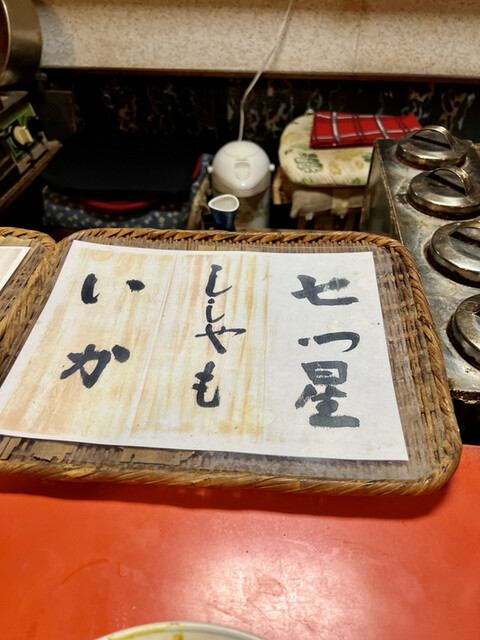 七つ星
ししゃも
いか